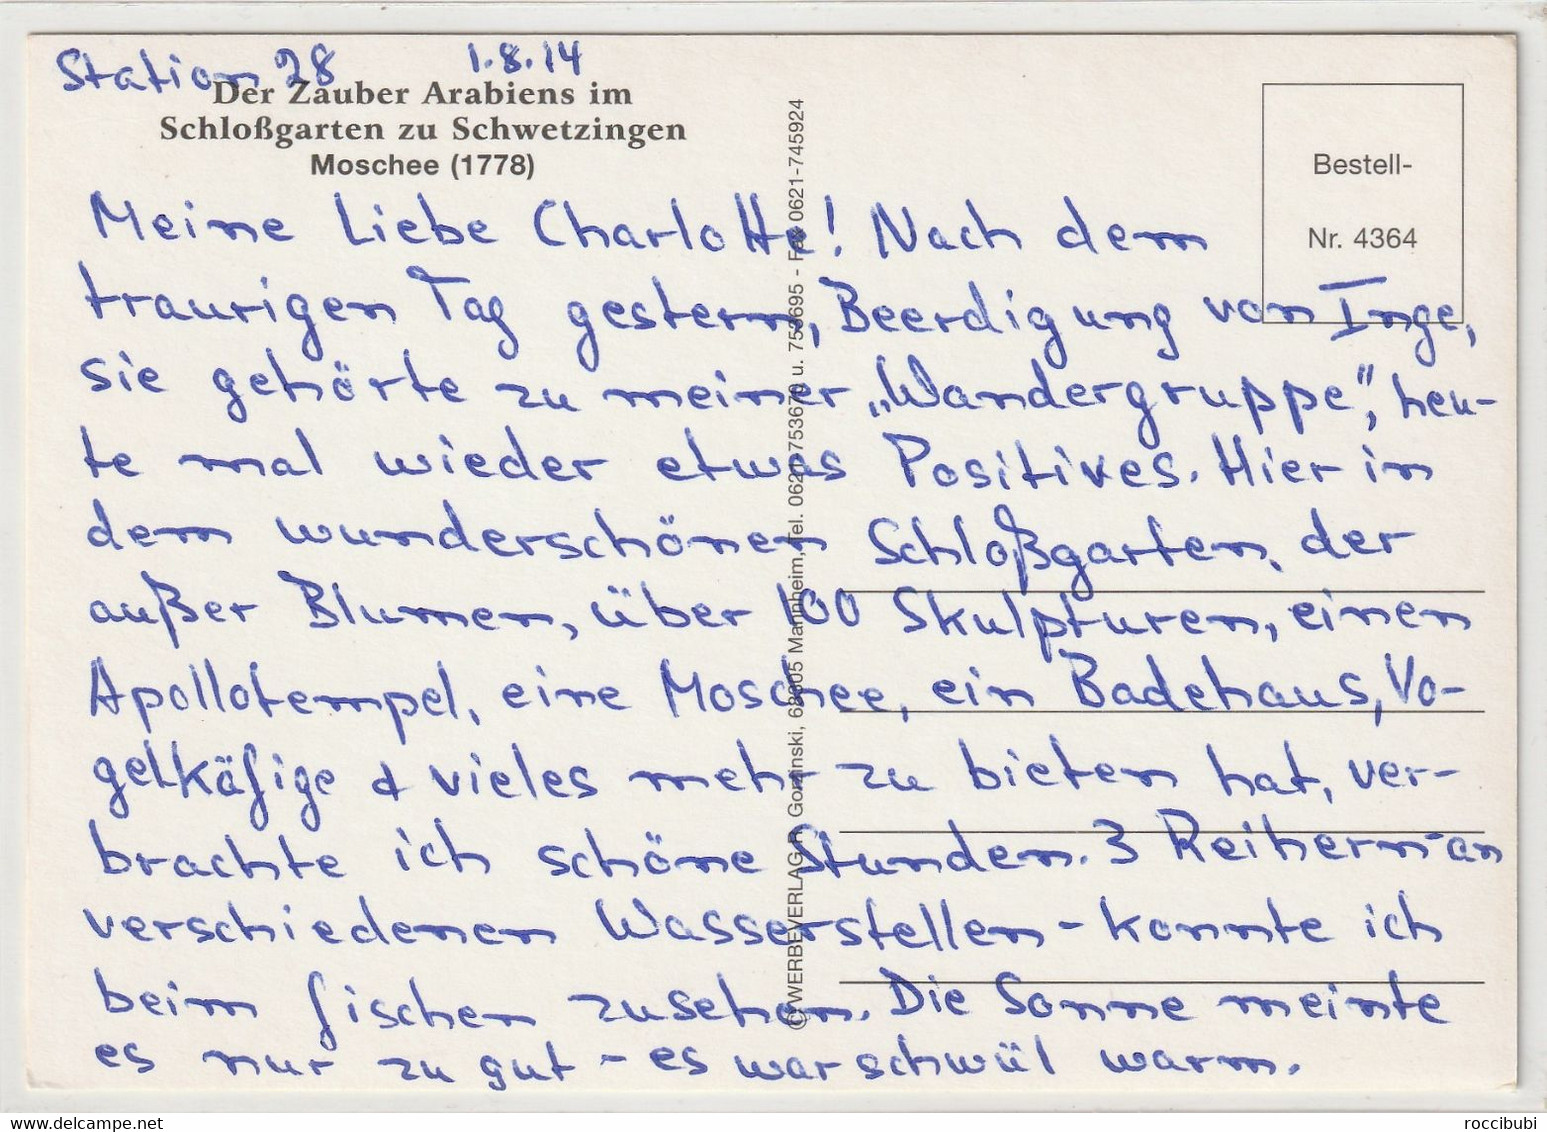 Station 28 1.8.14
Der Zauber Arabiens im
Schloßgarten zu Schwetzingen
Moschee (1778)
Bestell-
Nr. 4364
Meine Liebe Charlotte! Nach dem
traurigen Tag gestern, Beerdigung von Inge,
sie gehörte zu meiner „Wandergruppe", heu-
te mal wieder etwas Positives. Hier in
dem wunderschönen Schloßgarten, der
außer Blumen, über 100 Skulpturen, einen
Apollotempel, eine Moschee, ein Badehaus, Vo-
gelkäfige & vieles mehr zu bieten hat, ver-
brachte ich schöne Stunden. 3 Reihern - an
verschiedenen Wasserstellen - konnte ich
beim fischen zusehen. Die Sonne meinte
es nur zu gut - es war schwül warm.
© WERBEVERLAG Mannheim, Tel. 0621-753670 u. - Fax 0621-745924
www.delcampe.net
roccibubi